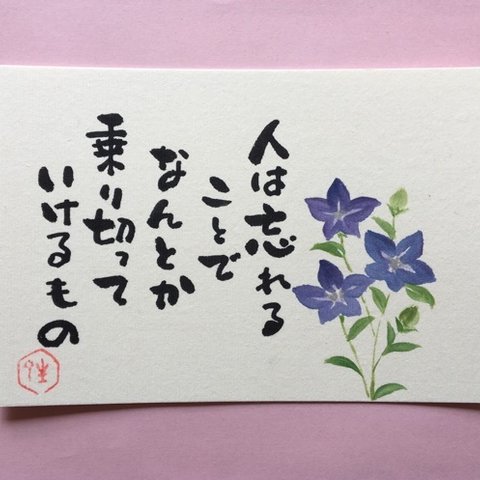 人は忘れる
ことで
なんとか
乗り切って
いけるもの